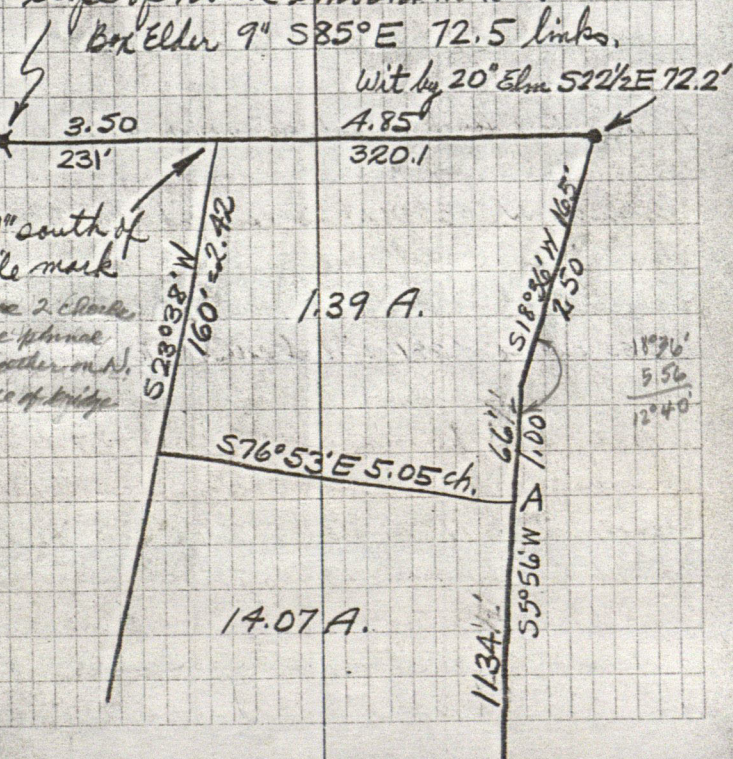 Box Elder 9" S85°E 72.5 links.
Wit by 20" Elm S22½E 72.2'
3.50
231'
4.85
320.1
" south of
mark
2
on N.
of bridge
S23°38'W
160' = 2.42
1.39 A.
S18°36'W 165'
2.50
18°36'
5.56
12°40'
66'
1.00
S76°53'E 5.05 ch.
A
S5°56'W
14.07 A.
11.34